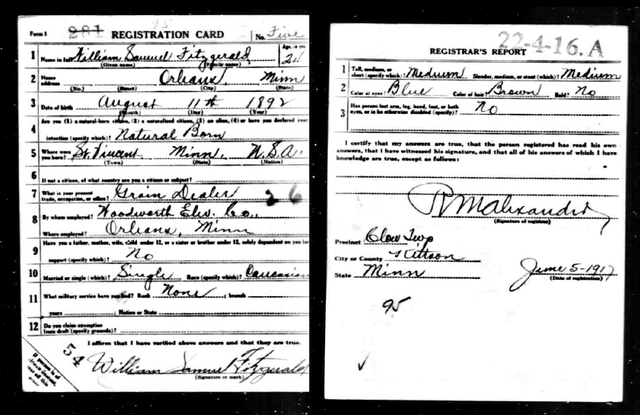 Form 1 281 REGISTRATION CARD No. Five
1 Name in full William Samuel Fitzgerald
(Given name) (Family name)
Age, in yrs. 24
2 Home address Orleans, Minn
(No.) (Street) (City) (State)
3 Date of birth August 11th 1892
(Month) (Day) (Year)
4 Are you (1) a natural-born citizen, (2) a naturalized citizen, (3) an alien, (4) or have you declared your
intention (specify which)? Natural Born
5 Where were you born? St. Vincent Minn. U.S.A.
(Town) (State) (Nation)
6 If not a citizen, of what country are you a citizen or subject?
7 What is your present trade, occupation, or office? Grain Dealer 26
8 By whom employed? Woodworth Elev. Co.,
Where employed? Orleans, Minn
9 Have you a father, mother, wife, child under 12, or a sister or brother under 12, solely dependent on you for
support (specify which)? No
10 Married or single (which)? Single Race (specify which)? Caucasian
11 What military service have you had? Rank None ; branch
years ; Nation or State
12 Do you claim exemption from draft (specify grounds)?
I affirm that I have verified above answers and that they are true.
54
William Samuel Fitzgerald
(Signature or mark)
If person is of
22-4-16. A
REGISTRAR'S REPORT
1 Tall, medium, or short (specify which)? Medium Slender, medium, or stout (which)? Medium
2 Color of eyes? Blue Color of hair? Brown Bald? No
3 Has person lost arm, leg, hand, foot, or both
eyes, or is he otherwise disabled (specify)? No
I certify that my answers are true, that the person registered has read his own
answers, that I have witnessed his signature, and that all of his answers of which I have
knowledge are true, except as follows:
R M Alexander
(Signature of registrar)
Precinct Clow Twp
City or County Kittson
State Minn
June 5-1917
(Date of registration)
95